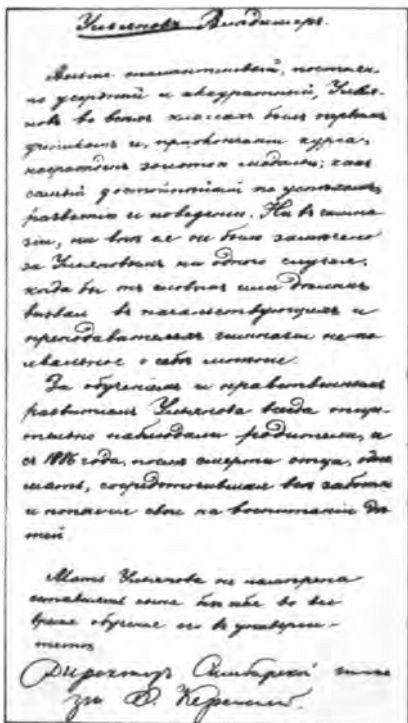 Ульяновъ Владимиръ.
Весьма талантливый, постоян-
но усердный и аккуратный, Улья-
новъ во всѣхъ классахъ былъ первымъ
ученикомъ и, при окончаніи курса,
награжденъ золотою медалью, какъ
самый достойнѣйшій по успѣхамъ,
развитію и поведенію. Ни въ гимна-
зіи, ни внѣ ея не было замѣчено
за Ульяновымъ ни одного случая,
когда бы онъ словомъ или дѣломъ
вызвалъ въ начальствующихъ и
преподавателяхъ гимназіи непо-
хвальное о себѣ мнѣніе.
За обученіемъ и нравственнымъ
развитіемъ Ульянова всегда тща-
тельно наблюдали родители, а
съ 1886 года, послѣ смерти отца, одна
мать, сосредоточившая всѣ заботы
и попеченія свои на воспитаніи дѣ-
тей.
Мать Ульянова не намѣрена
оставлять сына безъ себя во все
время обученія его въ универси-
тетѣ.
Директоръ Симбирской гимна-
зіи Ѳ. Керенскій.